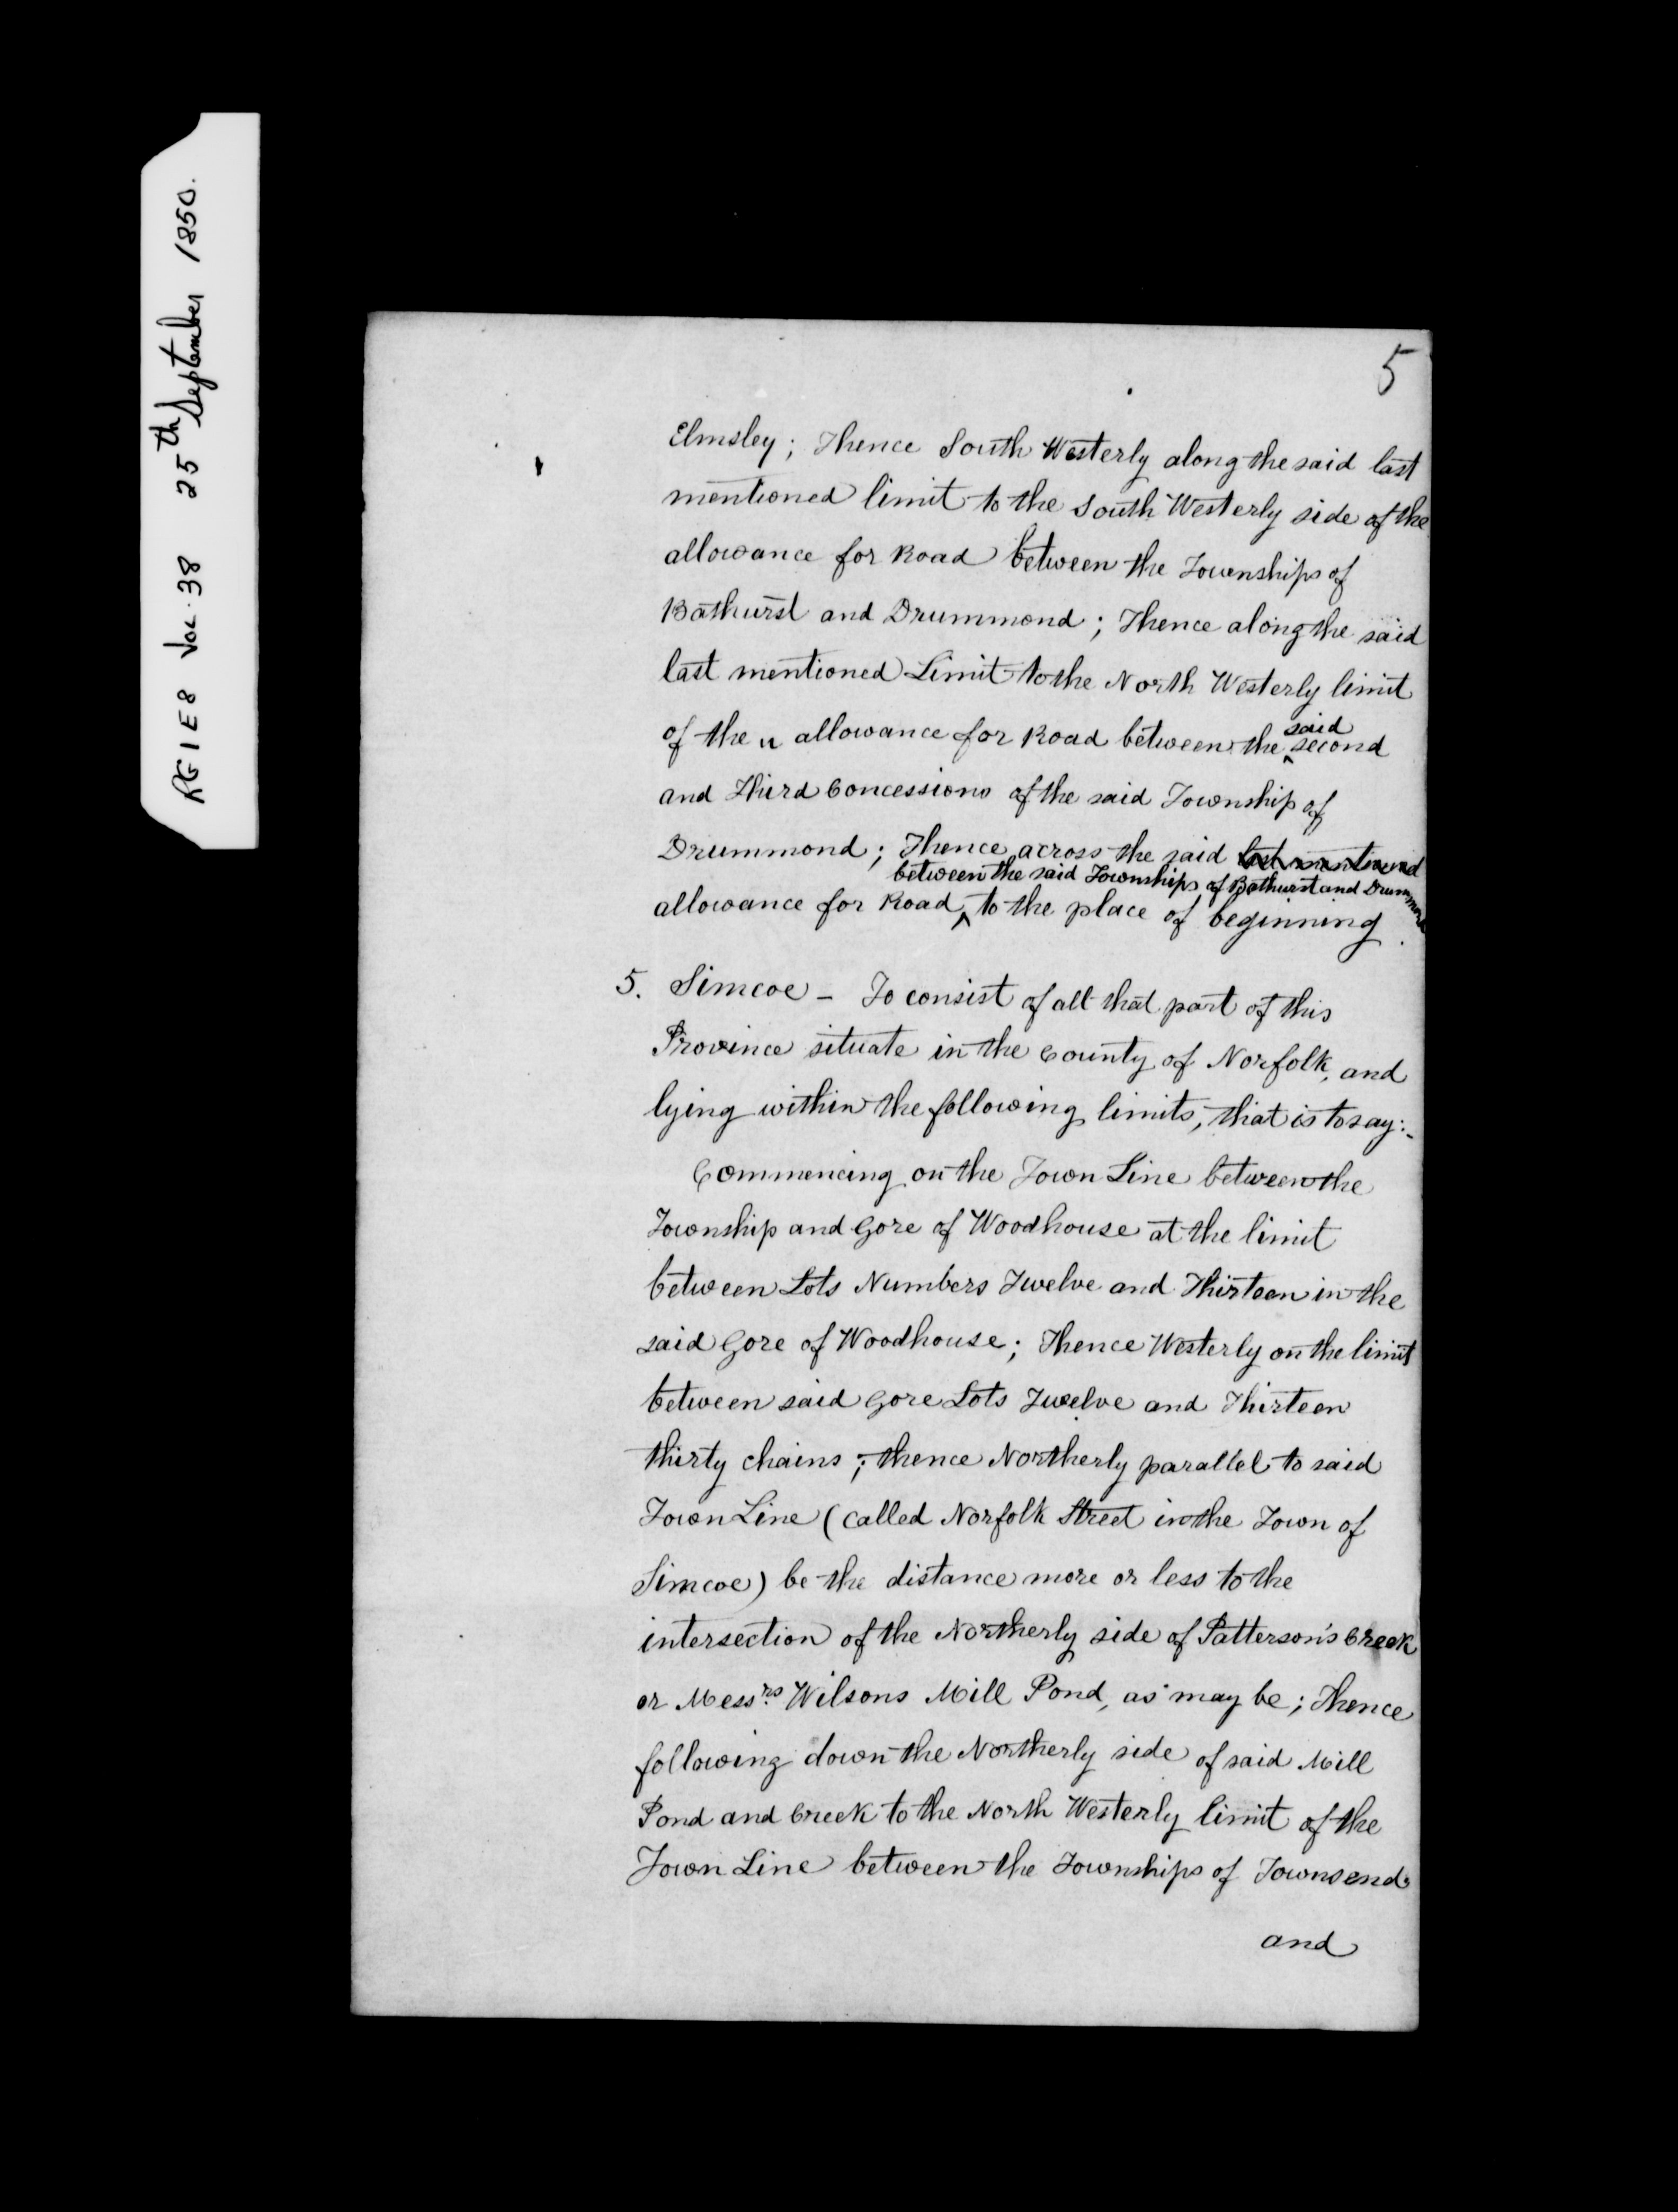 RG 1 E 8 Vol. 38 25th September 1850.
5
Elmsley; Thence South Westerly along the said last
mentioned limit to the South Westerly side of the
allowance for Road between the Townships of
Bathurst and Drummond; Thence along the said
last mentioned Limit to the North Westerly limit
said
of the " allowance for Road between the ^ second
and Third Concessions of the said Township of
Drummond; Thence across the said last mentioned
between the said Townships of Bathurst and Drummond
allowance for Road ^ to the place of beginning.
5. Simcoe - To consist of all that part of this
Province situate in the County of Norfolk, and
lying within the following limits, that is to say:-
Commencing on the Town Line between the
Township and Gore of Woodhouse at the limit
between Lots Numbers Twelve and Thirteen in the
said Gore of Woodhouse; Thence Westerly on the limit
between said Gore Lots Twelve and Thirteen
thirty chains; thence Northerly parallel to said
Town Line (called Norfolk Street in the Town of
Simcoe) be the distance more or less to the
intersection of the Northerly side of Patterson's Creek
or Messrs. Wilsons Mill Pond, as may be; Thence
following down the Northerly side of said Mill
Pond and Creek to the North Westerly limit of the
Town Line between the Townships of Townsend
and